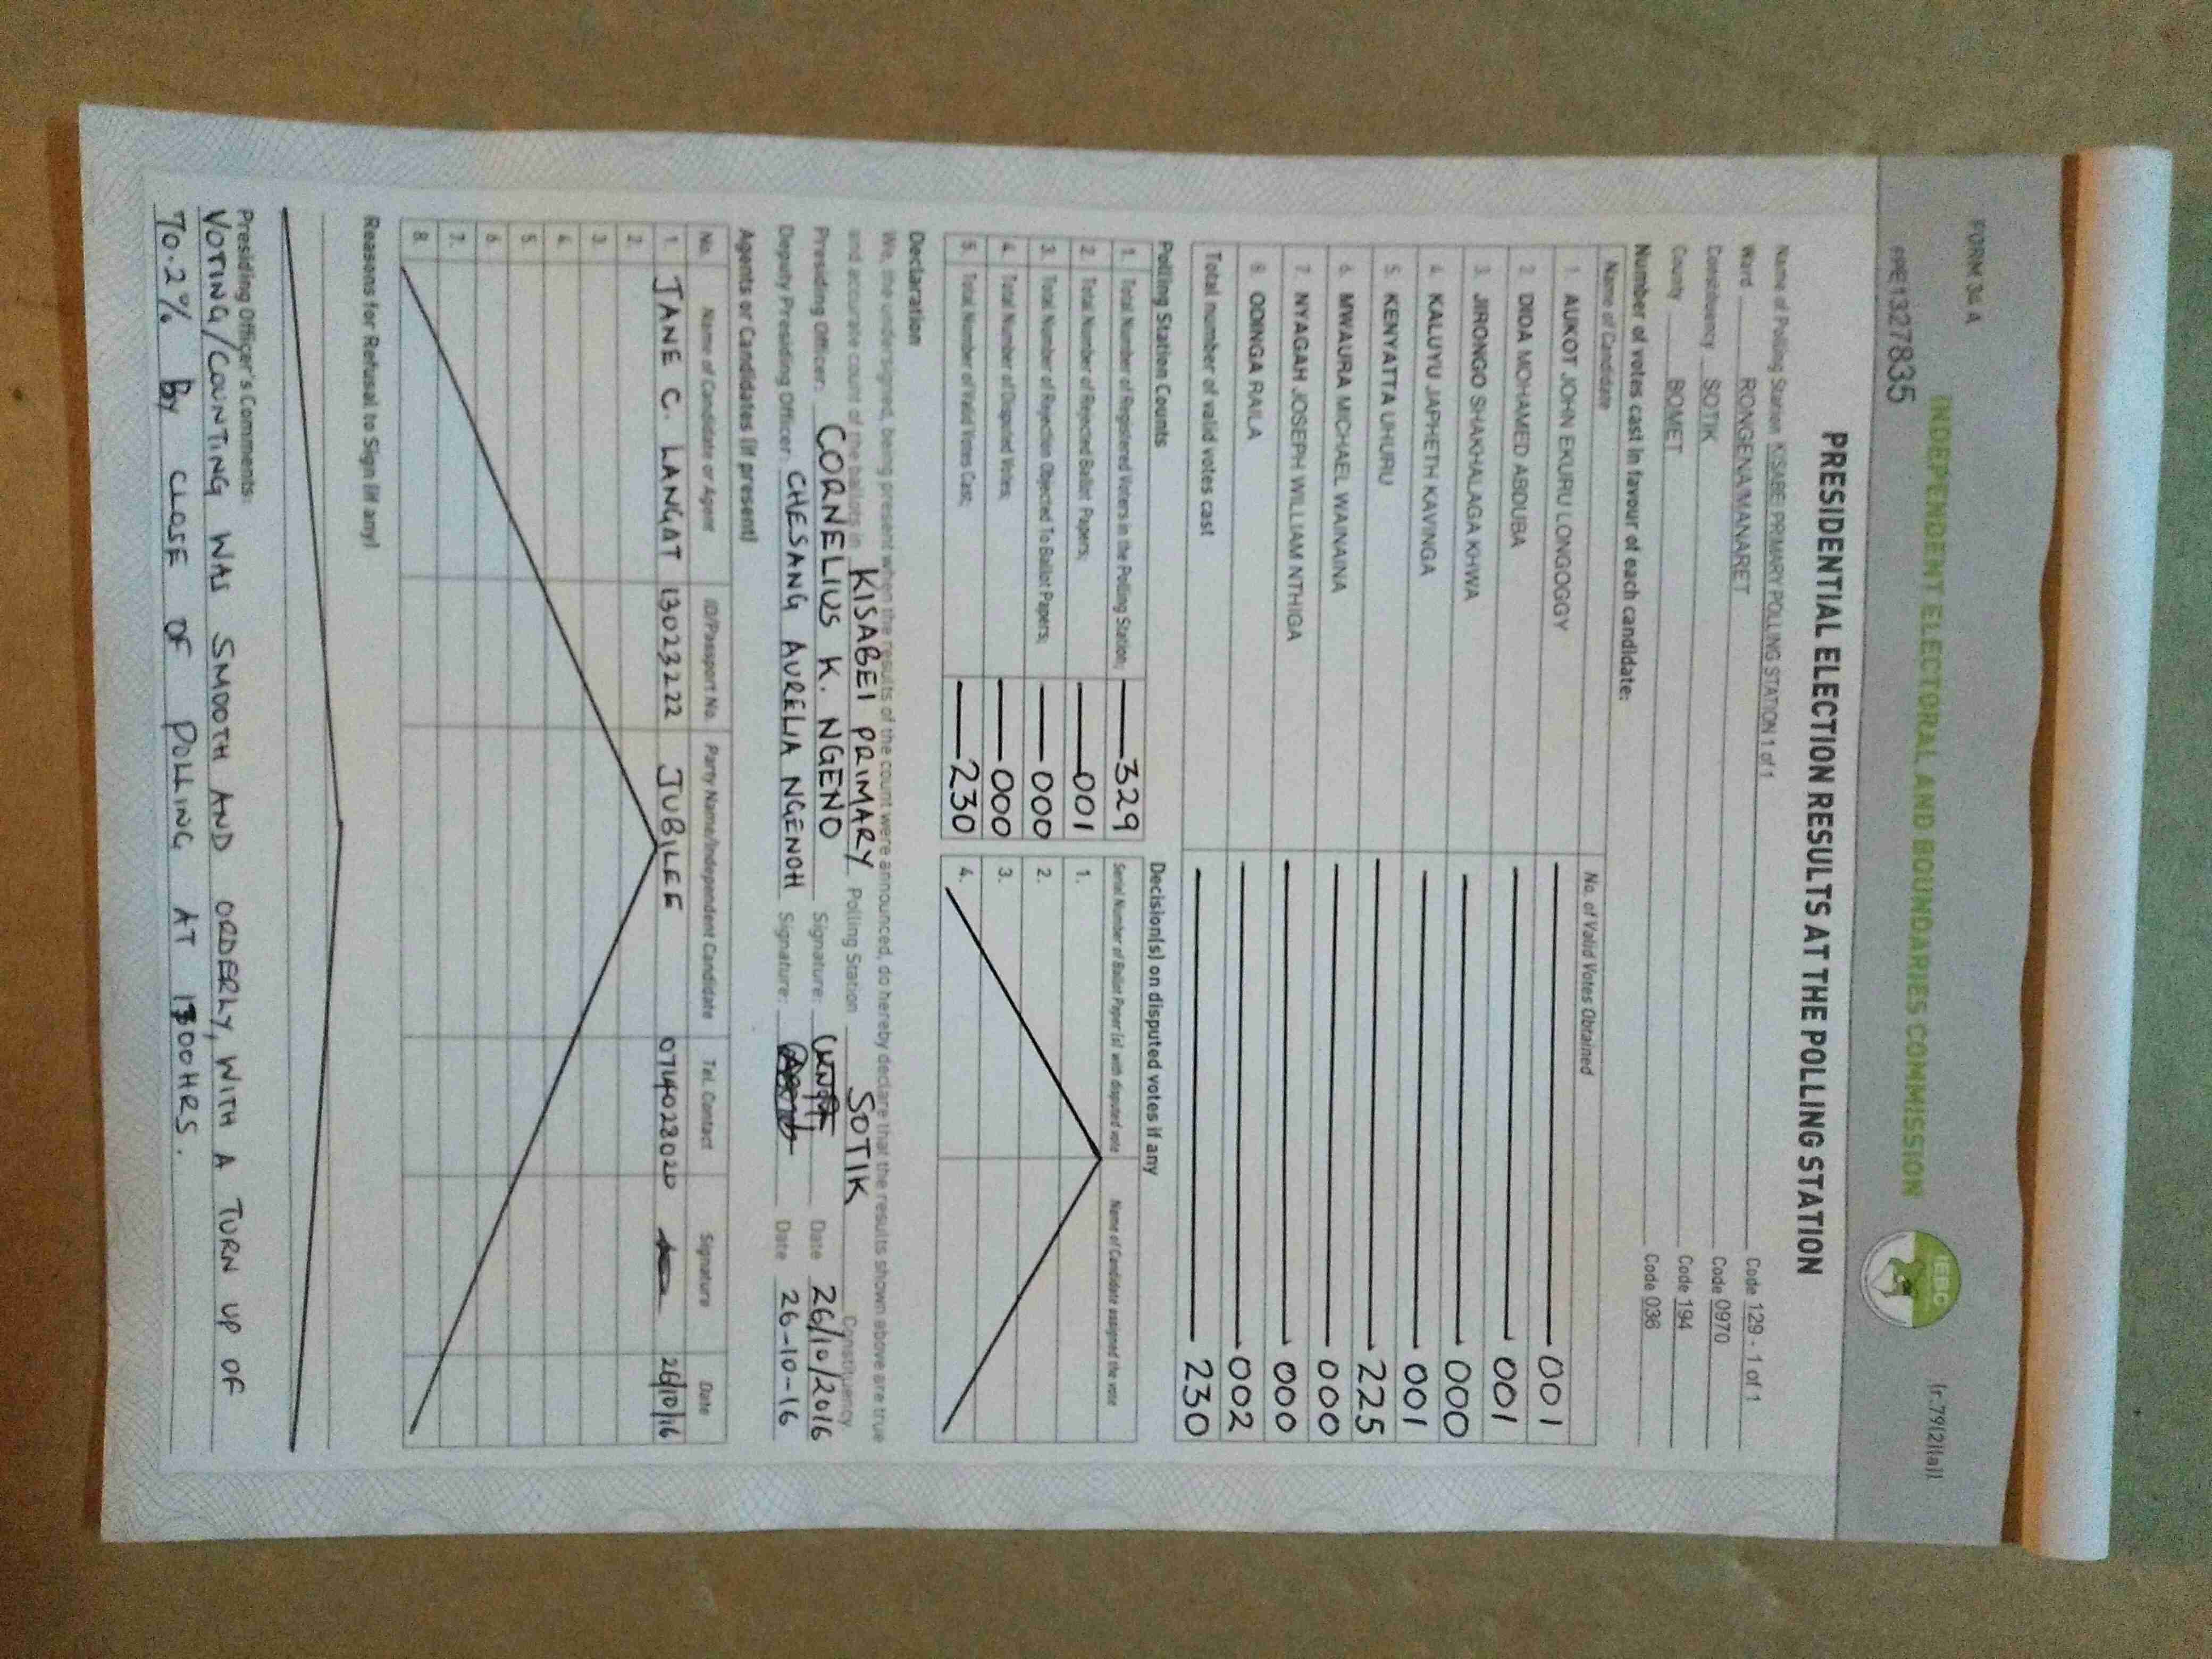 FORM 34 A
(r.79(2)(a))
INDEPENDENT ELECTORAL AND BOUNDARIES COMMISSION
IEBC
PRE1327835
PRESIDENTIAL ELECTION RESULTS AT THE POLLING STATION
Name of Polling Station KISABE PRIMARY POLLING STATION 1 of 1 Code 129 - 1 of 1
Ward RONGENA/MANARET Code 0970
Constituency SOTIK Code 194
County BOMET Code 036
Number of votes cast in favour of each candidate:
Name of Candidate No. of Valid Votes Obtained
1. AUKOT JOHN EKURU LONGOGGY 001
2. DIDA MOHAMED ABDUBA 001
3. JIRONGO SHAKHALAGA KHWA 000
4. KALUYU JAPHETH KAVINGA 001
5. KENYATTA UHURU 225
6. MWAURA MICHAEL WAINAINA 000
7. NYAGAH JOSEPH WILLIAM NTHIGA 000
8. ODINGA RAILA 002
Total number of valid votes cast 230
Polling Station Counts
1. Total Number of Registered Voters in the Polling Station; 329
2. Total Number of Rejected Ballot Papers; 001
3. Total Number of Rejection Objected To Ballot Papers; 000
4. Total Number of Disputed Votes; 000
5. Total Number of Valid Votes Cast; 230
Decision(s) on disputed votes if any
Serial Number of Ballot Paper (s) with disputed vote Name of Candidate assigned the vote
1.
2.
3.
4.
Declaration
We, the undersigned, being present when the results of the count were announced, do hereby declare that the results shown above are true
and accurate count of the ballots in KISABEI PRIMARY Polling Station SOTIK Constituency
Presiding Officer: CORNELIUS K. NGENO Signature: Date 26/10/2016
Deputy Presiding Officer: CHESANG AURELIA NGENOH Signature: Date 26-10-16
Agents or Candidates (if present)
No. Name of Candidate or Agent ID/Passport No. Party Name/Independent Candidate Tel. Contact Signature Date
1. JANE C. LANGAT 13023222 JUBILEE 0714028020 26/10/16
2.
3.
4.
5.
6.
7.
8.
Reasons for Refusal to Sign (if any)
Presiding Officer's Comments:
VOTING/COUNTING WAS SMOOTH AND ORDERLY, WITH A TURN UP OF
70.2% BY CLOSE OF POLLING AT 1300HRS.